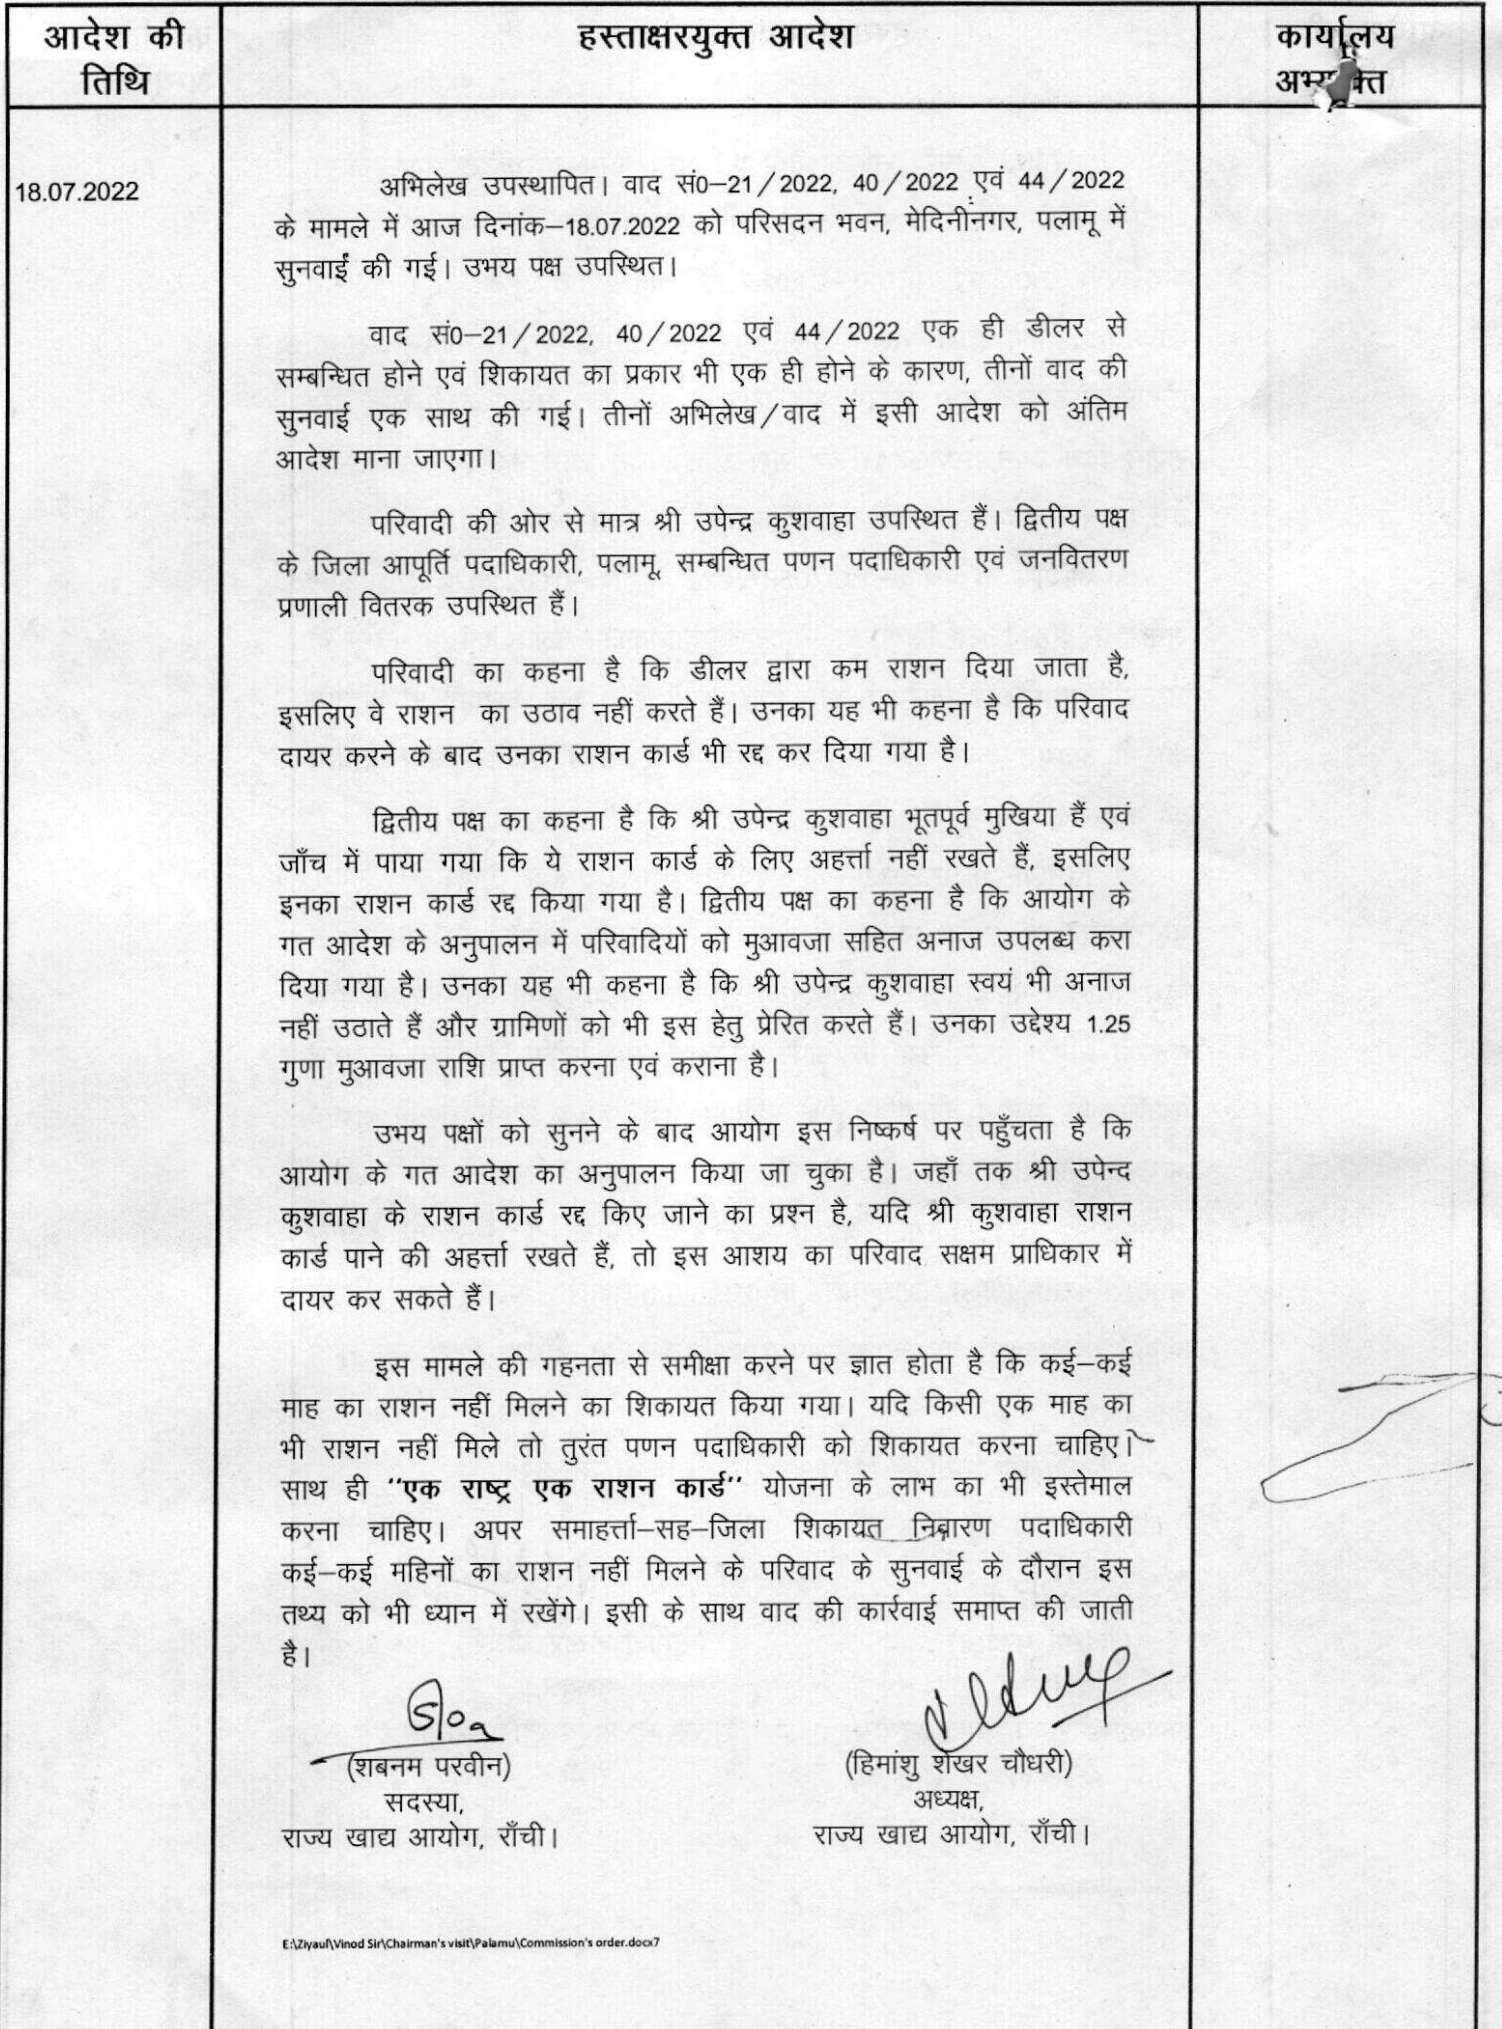 आदेश की
तिथि
हस्ताक्षरयुक्त आदेश
कार्यालय
18.07.2022
अभिलेख उपस्थापित। वाद सं0–21/2022, 40/2022 एवं 44/2022
के मामले में आज दिनांक–18.07.2022 को परिसदन भवन, मेदिनीनगर, पलामू में
सुनवाई की गई। उभय पक्ष उपस्थित।
वाद सं0–21/2022, 40/2022 एवं 44/2022 एक ही डीलर से
सम्बन्धित होने एवं शिकायत का प्रकार भी एक ही होने के कारण, तीनों वाद की
सुनवाई एक साथ की गई। तीनों अभिलेख/वाद में इसी आदेश को अंतिम
आदेश माना जाएगा।
परिवादी की ओर से मात्र श्री उपेन्द्र कुशवाहा उपस्थित हैं। द्वितीय पक्ष
के जिला आपूर्ति पदाधिकारी, पलामू, सम्बन्धित पणन पदाधिकारी एवं जनवितरण
प्रणाली वितरक उपस्थित हैं।
परिवादी का कहना है कि डीलर द्वारा कम राशन दिया जाता है,
इसलिए वे राशन का उठाव नहीं करते हैं। उनका यह भी कहना है कि परिवाद
दायर करने के बाद उनका राशन कार्ड भी रद्द कर दिया गया है।
द्वितीय पक्ष का कहना है कि श्री उपेन्द्र कुशवाहा भूतपूर्व मुखिया हैं एवं
जाँच में पाया गया कि ये राशन कार्ड के लिए अहर्त्ता नहीं रखते हैं, इसलिए
इनका राशन कार्ड रद्द किया गया है। द्वितीय पक्ष का कहना है कि आयोग के
गत आदेश के अनुपालन में परिवादियों को मुआवजा सहित अनाज उपलब्ध करा
दिया गया है। उनका यह भी कहना है कि श्री उपेन्द्र कुशवाहा स्वयं भी अनाज
नहीं उठाते हैं और ग्रामिणों को भी इस हेतु प्रेरित करते हैं। उनका उद्देश्य 1.25
गुणा मुआवजा राशि प्राप्त करना एवं कराना है।
उभय पक्षों को सुनने के बाद आयोग इस निष्कर्ष पर पहुँचता है कि
आयोग के गत आदेश का अनुपालन किया जा चुका है। जहाँ तक श्री उपेन्द
कुशवाहा के राशन कार्ड रद्द किए जाने का प्रश्न है, यदि श्री कुशवाहा राशन
कार्ड पाने की अहर्त्ता रखते हैं, तो इस आशय का परिवाद सक्षम प्राधिकार में
दायर कर सकते हैं।
इस मामले की गहनता से समीक्षा करने पर ज्ञात होता है कि कई–कई
माह का राशन नहीं मिलने का शिकायत किया गया। यदि किसी एक माह का
भी राशन नहीं मिले तो तुरंत पणन पदाधिकारी को शिकायत करना चाहिए।
साथ ही ''एक राष्ट्र एक राशन कार्ड'' योजना के लाभ का भी इस्तेमाल
करना चाहिए। अपर समाहर्त्ता–सह–जिला शिकायत निवारण पदाधिकारी
कई–कई महिनों का राशन नहीं मिलने के परिवाद के सुनवाई के दौरान इस
तथ्य को भी ध्यान में रखेंगे। इसी के साथ वाद की कार्रवाई समाप्त की जाती
है।
(शबनम परवीन)
सदस्या,
राज्य खाद्य आयोग, राँची।
(हिमांशु शेखर चौधरी)
अध्यक्ष,
राज्य खाद्य आयोग, राँची।
E:\Ziyaul\Vinod Sir\Chairman's visit\Palamu\Commission's order.docx7